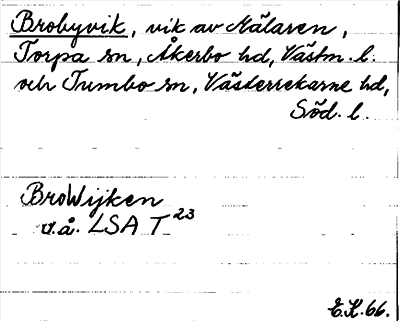 Brobyvik, vik av Mälaren,
Torpa sn, Åkerbo hd, Västm. l.
och Tumbo sn, Västerrekarne hd,
Söd. l.
BroWijken
u.å. LSA T 23
E.K. 66.